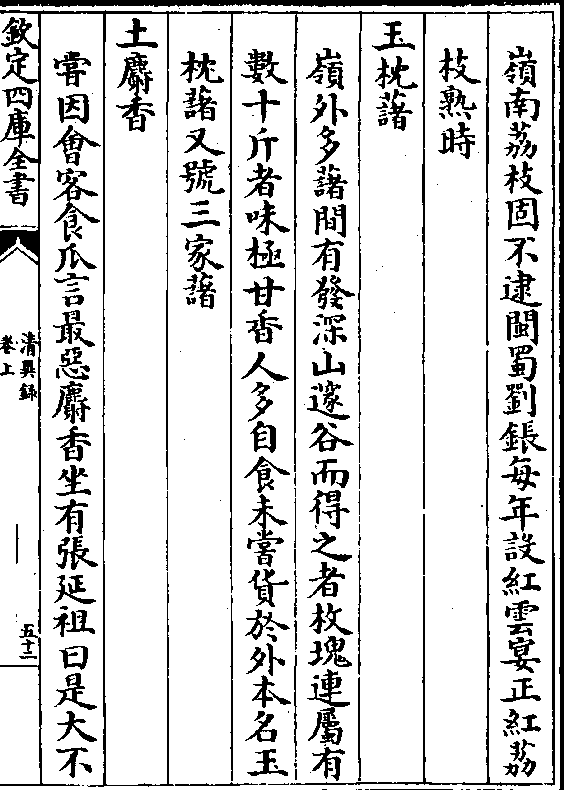 嶺南荔枝固不逮閩蜀劉鋹每年設紅雲宴正紅荔
枝熟時
玉枕藷
嶺外多藷間有發深山邃谷而得之者枚塊連屬有
數十斤者味極甘香人多自食未嘗貨於外本名玉
枕藷又號三家藷
土麝香
嘗因會客食瓜言最惡麝香坐有張延祖曰是大不
欽定四庫全書
清異録
卷上
五十二